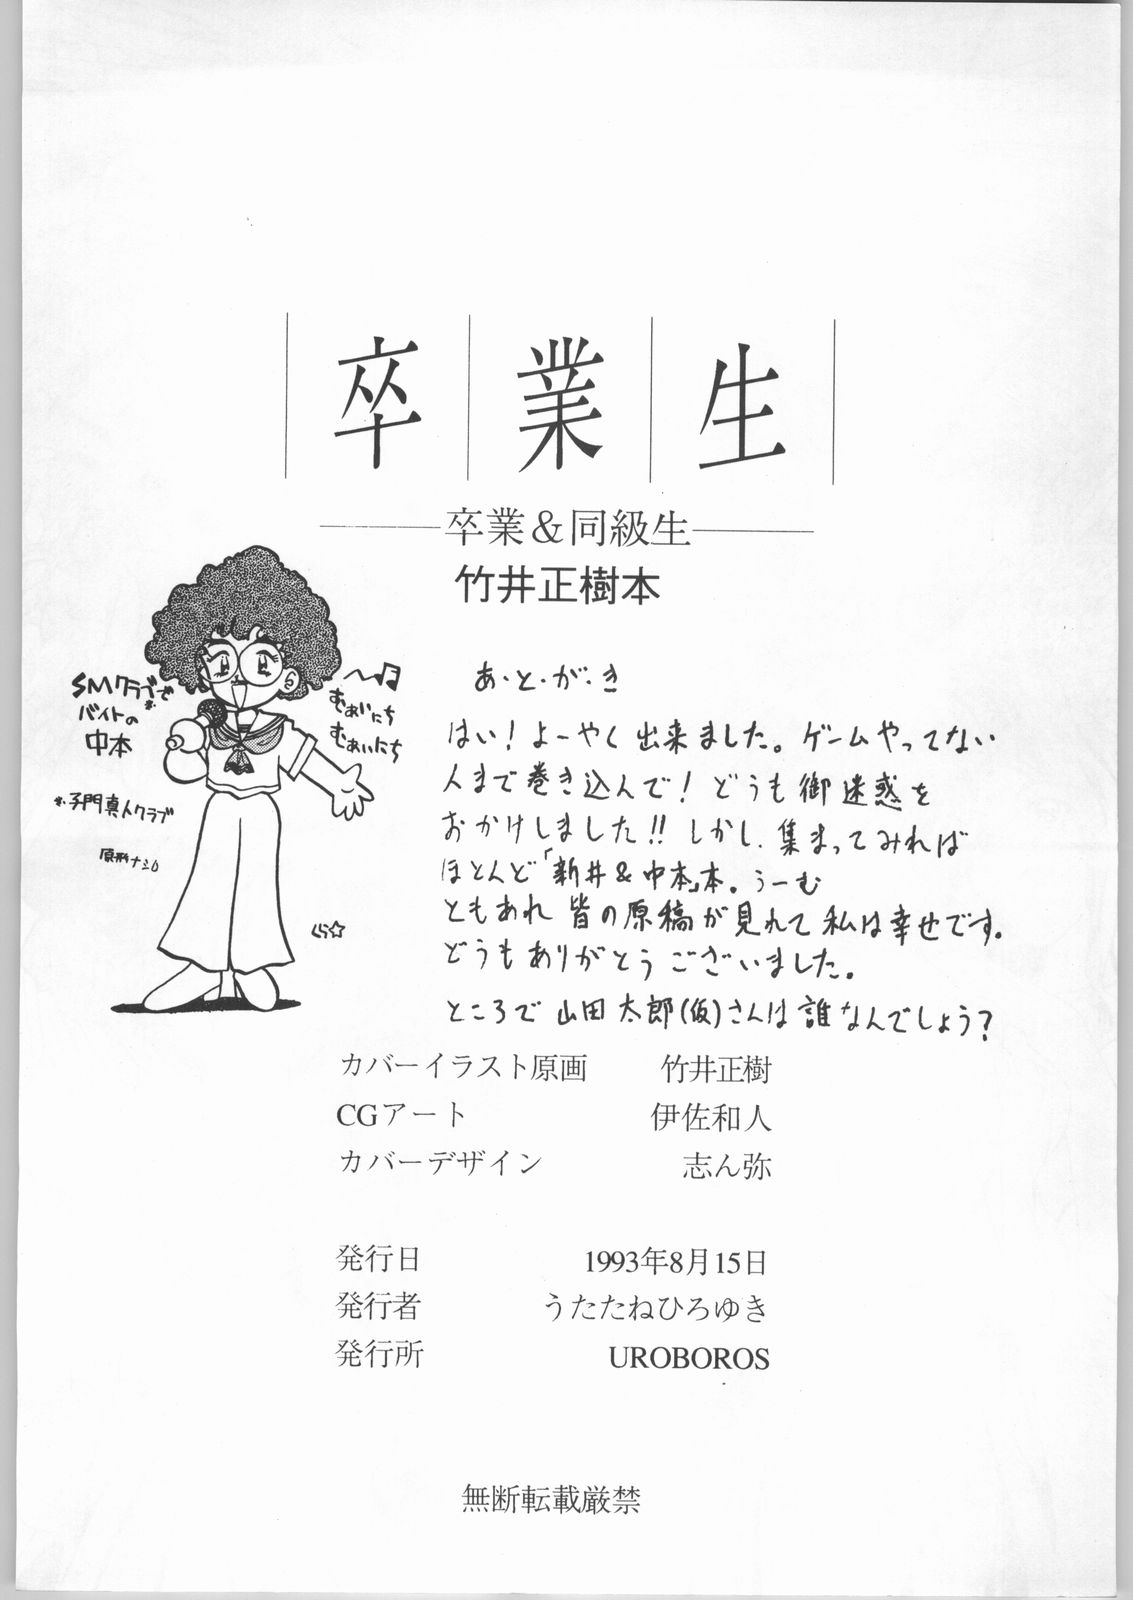 卒業生
卒業&同級生
竹井正樹本
SMクラブ※で
バイトの
中本
※子門真人クラブ
原形ナシ
〜♬
むぁいにち
むぁいにち
あ・と・が・き
はい!よーやく出来ました。ゲームやってない
人まで巻き込んで!どうも御迷惑を
おかけしました!!しかし、集まってみれば
ほとんど「新井&中本」本。うーむ
ともあれ皆の原稿が見れて私は幸せです。
どうもありがとうございました。
ところで山田太郎(仮)さんは誰なんでしょう?
カバーイラスト原画 竹井正樹
CGアート 伊佐和人
カバーデザイン 志ん弥
発行日 1993年8月15日
発行者 うたたねひろゆき
発行所 UROBOROS
無断転載厳禁